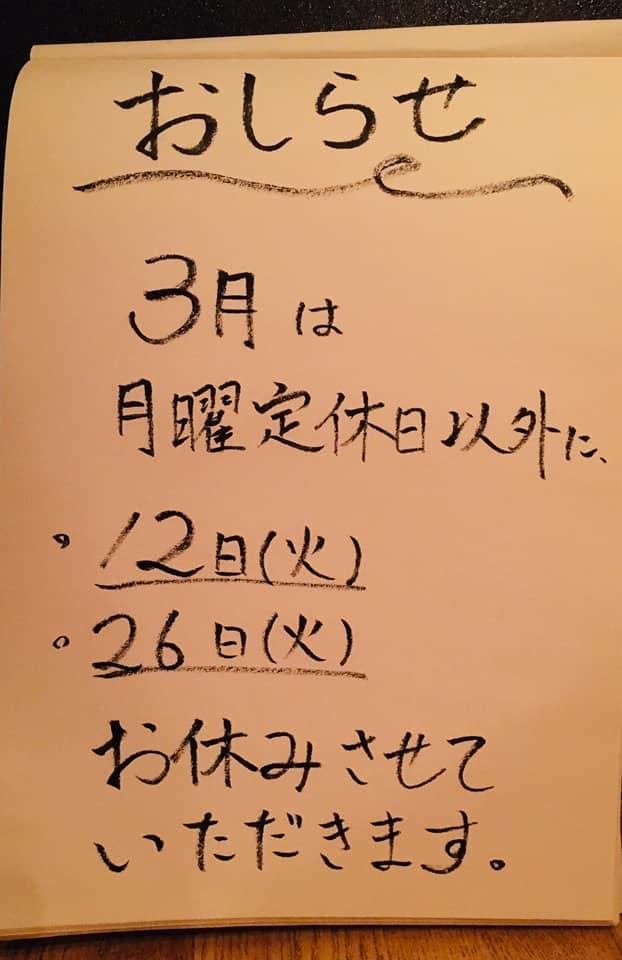 おしらせ
3月は
月曜定休日以外に、
・12日(火)
・26日(火)
お休みさせて
いただきます。